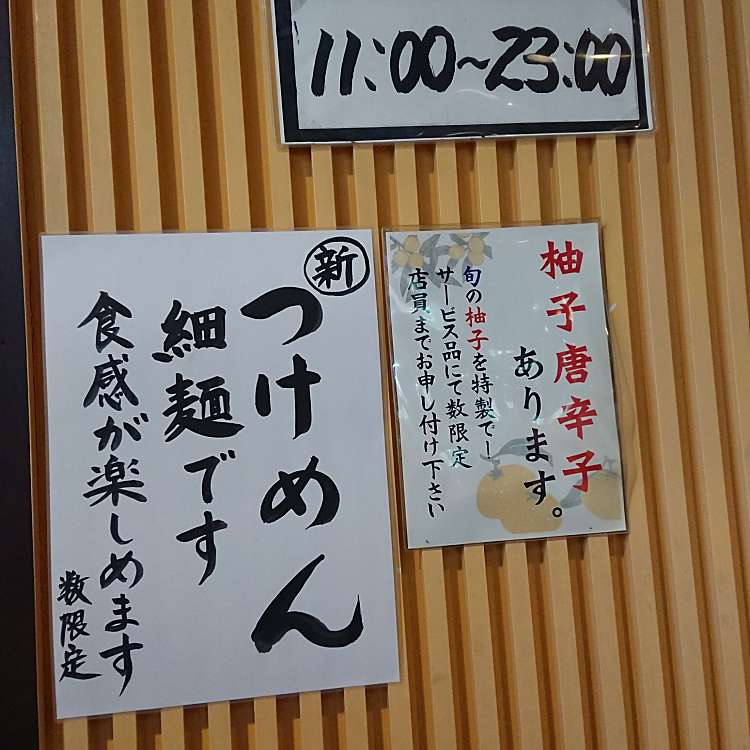 11:00~23:00
新
つけめん
細麺です
食感が楽しめます
数限定
柚子唐辛子
あります。
旬の柚子を特製でー
サービス品にて数限定
店員までお申し付け下さい